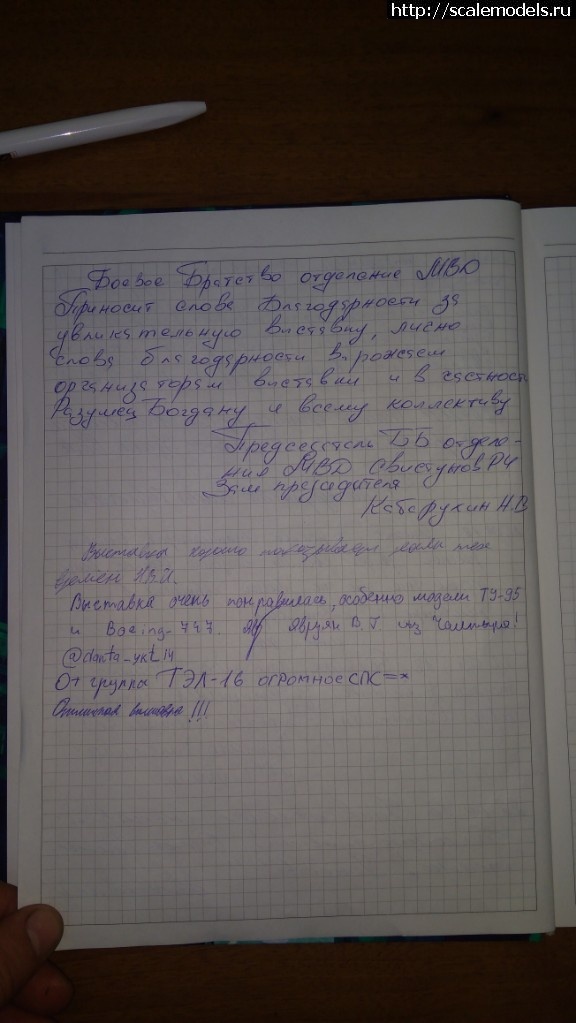 http://scalemodels.ru
Боевое Братство отделение МВД
Приносит слова Благодарности за
увлекательную виставку, лично
слова благодарности виражаем
организаторам виставки и в частност
Разумец Богдану и всему коллективу
Председатель ББ отделе-
ния МВД Свистунов РЧ
Зам председателя
Кабарухин Н.В
Выставка хорошо
времен
Выставка очень понравилась, особенно модели ТУ-95
и Boeing-747. Явруян В Г из Чалтыря!
@danta_ykt14
От группы ТЭЛ-16 огромное спс =*
Отличная выставка !!!